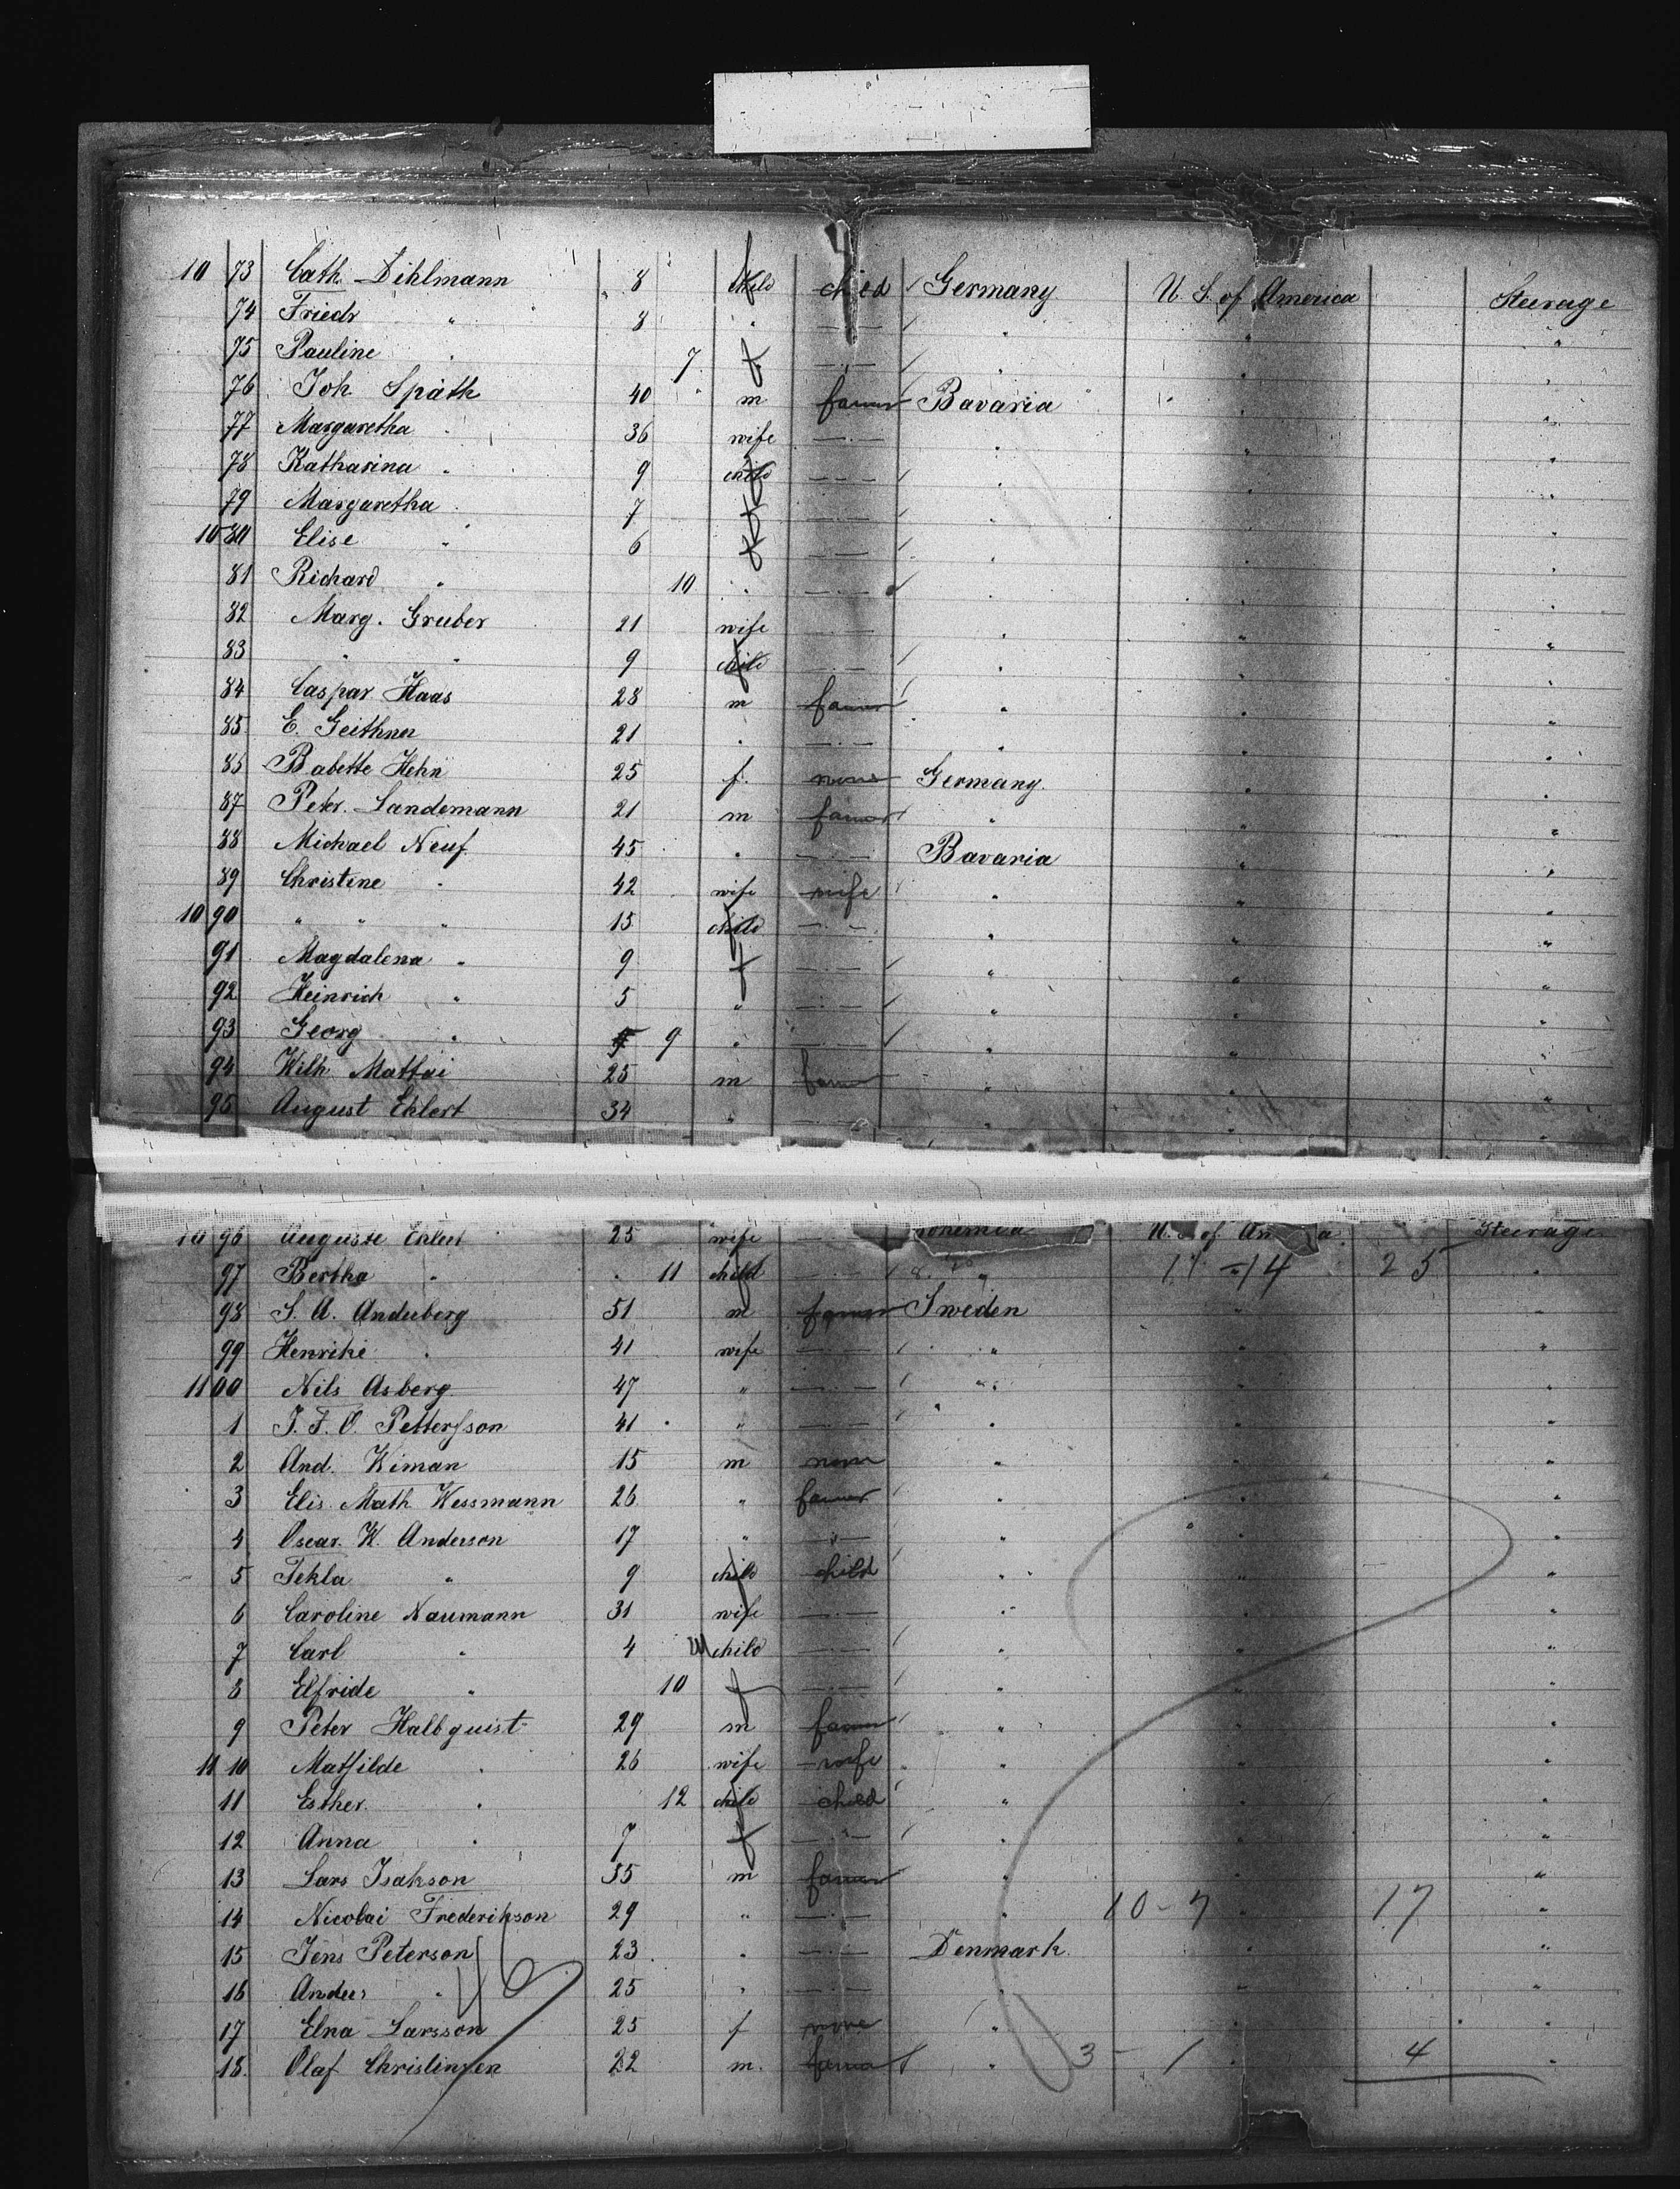 10 73 Cath. Dihlmann 8 child child Germany U. S. of America Steerage
74 Friedr " 8 " "
75 Pauline " 7 f " "
76 Joh. Späth 40 m farmer Bavaria " "
77 Margaretha " 36 wife " " "
78 Katharina " 9 child " " "
79 Margaretha " 7 f " " "
10 80 Elise " 6 f " " "
81 Richard " 10 " " " "
82 Marg. Gruber 21 wife " " "
83 " " 9 child " " "
84 Caspar Haas 28 m farmer " " "
85 E. Geithner 21 " " " "
86 Babette Hehn 25 f. none Germany " "
87 Peter Landemann 21 m farmer " " "
88 Michael Neuf 45 " Bavaria " "
89 Christine " 42 wife wife " " "
10 90 " " " 15 child " " "
91 Magdalena " 9 f " " "
92 Heinrich " 5 " " " "
93 Georg " 9 " " " "
94 Wilh. Mattai 25 m farmer " " "
95 August Ehlert 34 " " " "
10 96 Auguste Ehlert 25 wife Bohemia U. S. of America Steerage
97 Bertha " 11 child " 11 - 14 25 "
98 S. A. Anderberg 51 m farmer Sweden " "
99 Henrike " 41 wife " " "
11 00 Nils Asberg 47 " " " "
1 J. F. O. Pettersson 41 " " " "
2 And. Wiman 15 m none " " "
3 Elis. Math. Wessmann 26 " farmer " " "
4 Oscar W. Anderson 17 " " " " "
5 Tekla " 9 child child " " "
6 Caroline Naumann 31 wife " " "
7 Carl " 4 m child " " "
8 Elfride " 10 f " " "
9 Peter Hallquist 29 m farmer " " "
11 10 Mathilde " 26 wife wife " " "
11 Esther " 12 child child " " "
12 Anna " 7 f " " " "
13 Lars Isakson 35 m farmer " " "
14 Nicolai Frederikson 29 " " 10 - 7 17 "
15 Jens Peterson 23 " Denmark " "
16 Anders " 25 " " " "
17 Elna Larsson 25 f none " " "
18 Olaf Christensen 22 m. farmer " 3 - 1 4 "